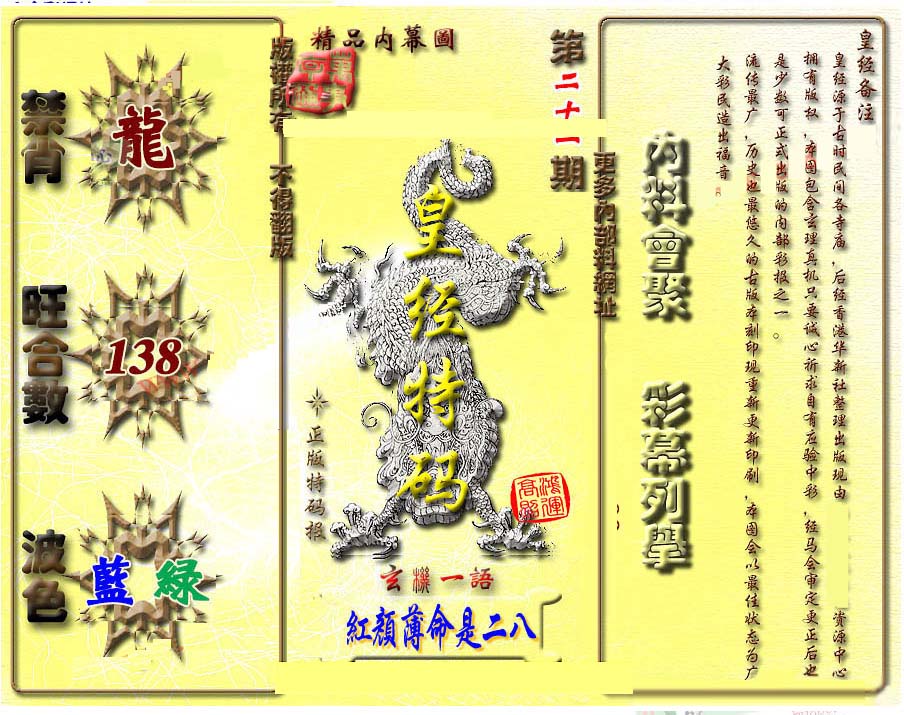 精品内幕圖
版權所有
不得翻版
第二十一期
更多內部料網址
禁肖
龍
旺合數
138
波色
藍 綠
皇经特码
正版特码报
鴻運高照
玄機一語
紅顏薄命是二八
內料會聚
彩幕列舉
皇经备注
皇经源于古时民间各寺庙,后经香港华新社整理出版现由 资源中心
拥有版权,本图包含玄理真机只要诚心祈求自有应验中彩,经马会审定更正后也
是少数可正式出版的内部彩报之一。
流传最广,历史也最悠久的古版本刻印现重新更新印刷,本图会以最佳状态为广
大彩民造出福音